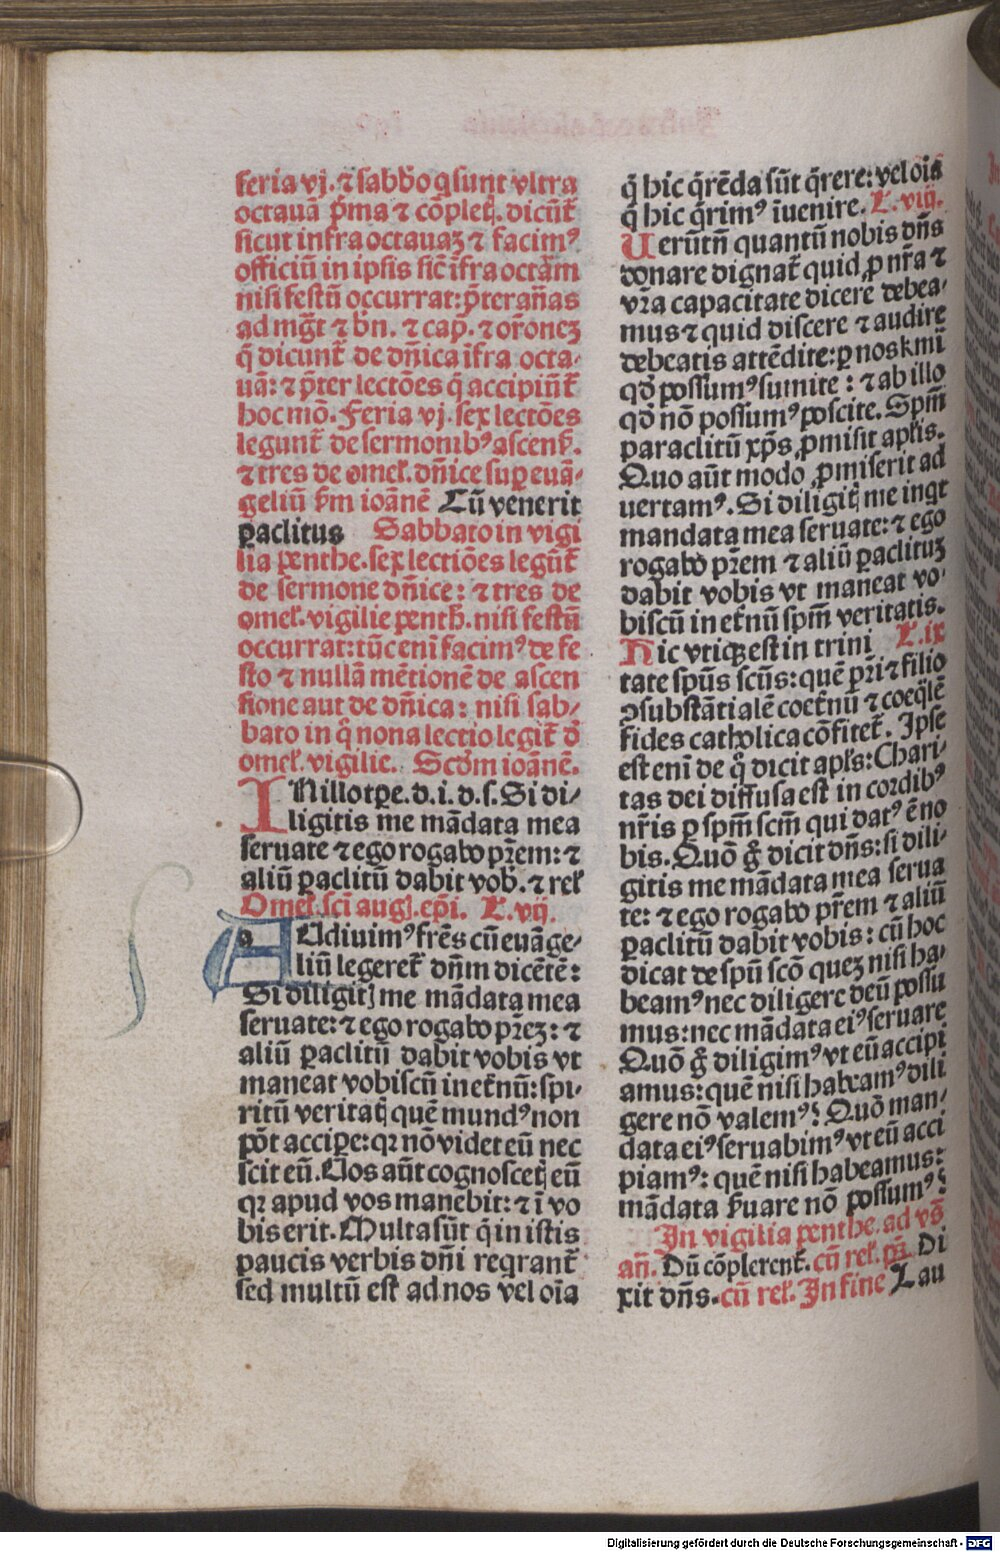 feria vj. ⁊ sabb̄o q̄ sunt vltra
octauā p̄ma ⁊ cōpletꝭ. dicūt᷑
sicut infra octauaꝫ ⁊ facimꝰ
officiū in ipsis sic̄ īfra octām
nisi festū occurrat: p̄ter an̄as
ad mg̅t ⁊ bn̄. ⁊ cap̄. ⁊ or̄oneꝫ
q̄ dicunt᷑ de dn̄ica īfra octa-
uā: ⁊ p̄ter lectōes q̄ accipiūt᷑
hoc mō. Feria vj. sex lectōes
legunt᷑ de sermonibꝰ ascenẜ.
⁊ tres de omeł. dn̄ice suꝑ euā-
geliū ẜm ioānē Cū venerit
ꝑaclitus Sabbato in vigi
lia penthe. sex lectiōes legūt᷑
de sermone dn̄ice: ⁊ tres de
omeł. vigilie penth̄. nisi festū
occurrat: tūc eni facimꝰ de fe
sto ⁊ nullā mētionē de ascen
sione aut de dn̄ica: nisi sab-
bato in q̄ nona lectio legit᷑ d̄
omeł. vigilie. Scd̄m ioānē.
IN illo tꝑe. d. i. d. s. Si di-
ligitis me mādata mea
seruate ⁊ ego rogabo pr̄em: ⁊
aliū ꝑaclitū dabit vob̄. ⁊ reł
Omeł. sci̅ aug. ep̄i. L. vij.
AUdiuimꝰ fr̄es cū euāge-
liū legeret᷑ dn̄m dicētē:
Si diligitꝭ me mādata mea
seruate: ⁊ ego rogabo pr̄eꝫ: ⁊
aliū ꝑaclitū dabit vobis vt
maneat vobiscū in et̄nū: spi-
ritū veritatꝭ quē mundꝰ non
pōt acciꝑe: qꝛ nō videt eū nec
scit eū. Uos aūt cognoscetꝭ eū
qꝛ apud vos manebit: ⁊ ī vo
bis erit. Multa sūt q̄ in istis
paucis verbis dn̄i reqrant᷑
sed multū est ad nos vel oīa
q̄ hic q̄rēda sūt q̄rere: vel oīs
q̄ hic q̄rimꝰ īuenire. L. viij.
Uerūtn̄ quantū nobis dn̄s
donare dignat᷑ quid ꝓ nr̄a ⁊
vr̄a capacitate dicere debea-
mus ⁊ quid discere ⁊ audire
debeatis attēdite: ꝑ nos kmi
qd̄ possumꝰ sumite: ⁊ ab illo
qd̄ nō possumꝰ poscite. Spm̄
paraclitū xp̄s ꝓmisit apłis.
Quo aūt modo ꝓmiserit ad
uertamꝰ. Si diligitꝭ me inqt
mandata mea seruate: ⁊ ego
rogabo pr̄em ⁊ aliū ꝑaclituꝫ
dabit vobis vt maneat vo-
biscū in et̄nū spm̄ veritatis.
Hic vtiqꝫ est in trini L. ix
tate spūs scūs: quē pr̄i ⁊ filio
ꝯsubstātialē coet̄nū ⁊ coeq̄lē
fides catholica cōfitet᷑. Ipse
est eni de q̄ dicit apłs: Chari-
tas dei diffusa est in cordibꝰ
nr̄is ꝑ spm̄ scm̄ qui datꝰ ē no
bis. Quō g̊ dicit dn̄s: si dili-
gitis me mādata mea serua
te: ⁊ ego rogabo pr̄em ⁊ aliū
ꝑaclitū dabit vobis: cū hoc
dicat de spū scō queꝫ nisi ha-
beamꝰ nec diligere deū possu
mus: nec mādata eiꝰ seruare
Quō g̊ diligimꝰ vt eū accipi
amus: quē nisi habeamꝰ dili
gere nō valemꝰ? Quō man-
data eiꝰ seruabimꝰ vt eū acci
piamꝰ: quē nisi habeamus:
mādata ẜuare nō possumꝰ?
In vigilia penthe. ad vs̄
an̄. Dū cōplerent᷑. cū reł. p̄s. Di
xit dn̄s. cū reł. In fine Lau
Digitalisierung gefördert durch die Deutsche Forschungsgemeinschaft - DFG